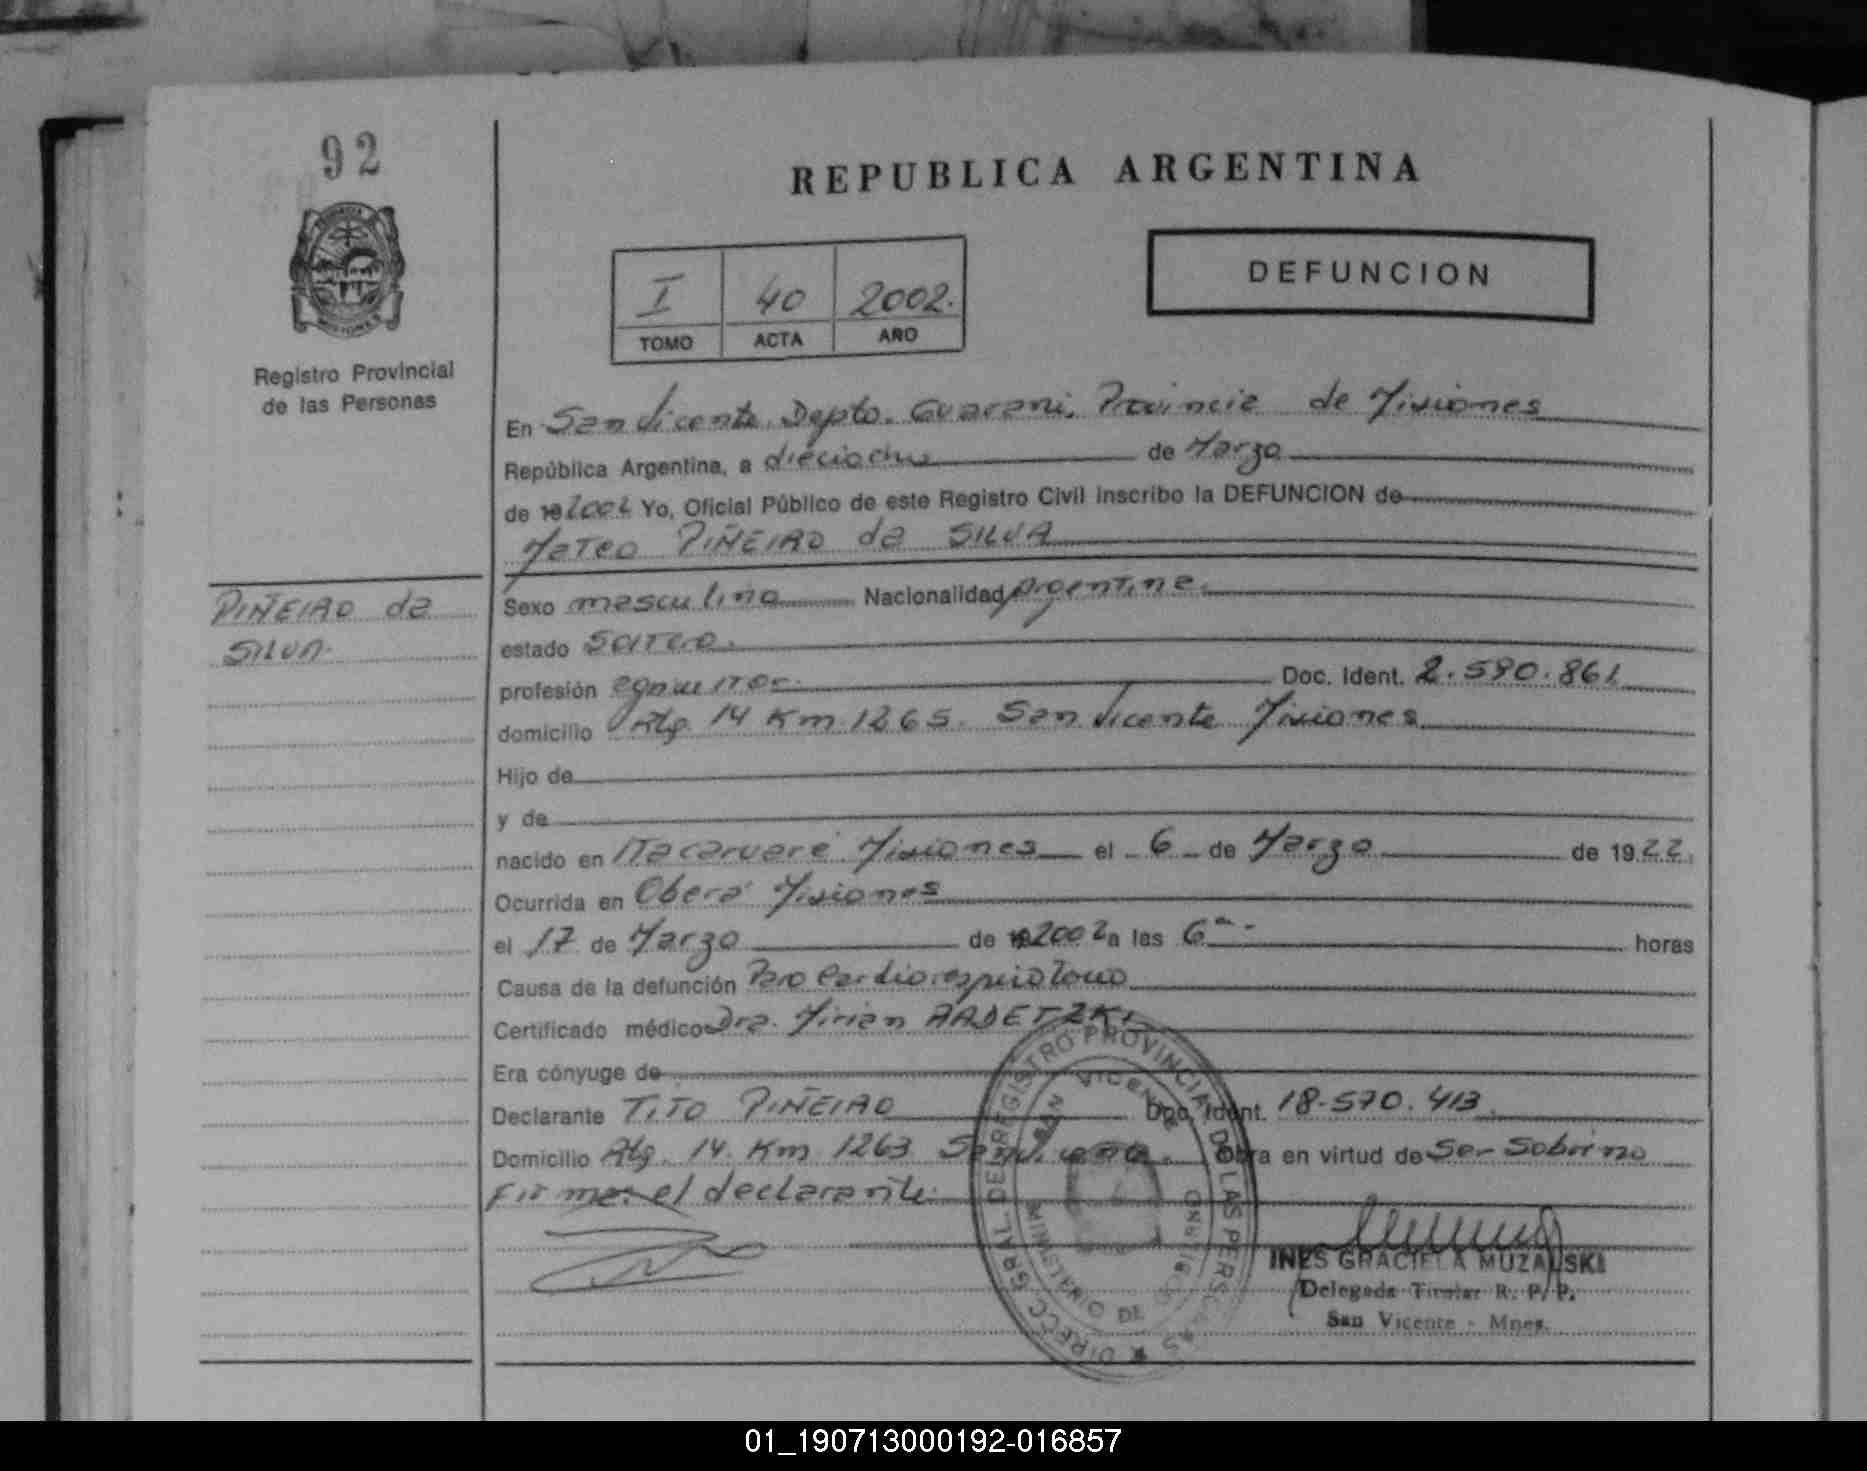 92
REPUBLICA ARGENTINA
I 40 2002.
TOMO ACTA AÑO
DEFUNCION
MISIONES
Registro Provincial
de las Personas
En San Vicente, Depto. Guarani, Provincia de Misiones
República Argentina, a dieciocho de Marzo
de 19 2002 Yo, Oficial Público de este Registro Civil inscribo la DEFUNCION de
Mateo PIÑEIRO da SILVA
PIÑEIRO da
SILVA.
Sexo masculino Nacionalidad Argentina.
estado Soltero.
profesión Doc. Ident. 2.590.861
domicilio Rta. 14 Km 1265. San Vicente Misiones
Hijo de
y de
nacido en Itacaruaré Misiones el 6 de Marzo de 1922.
Ocurrida en Oberá Misiones
el 17 de Marzo de 19 2002 a las 6 horas
Causa de la defunción Paro Cardiorespiratorio
Certificado médico Dra. Mirian
Era cónyuge de
Declarante TITO PIÑEIRO Doc. Ident. 18.570.413
Domicilio Rta. 14 Km 1263 San Vicente. Obra en virtud de Ser Sobrino
Firma: el declarante.
DIRECC. GRAL. DEL REGISTRO PROVINCIAL DE LAS PERSONAS
SAN VICENTE
MINISTERIO DE GOBIERNO
INES GRACIELA MUZALSKI
Delegada Titular R. P. P.
San Vicente - Mnes.
01_190713000192-016857